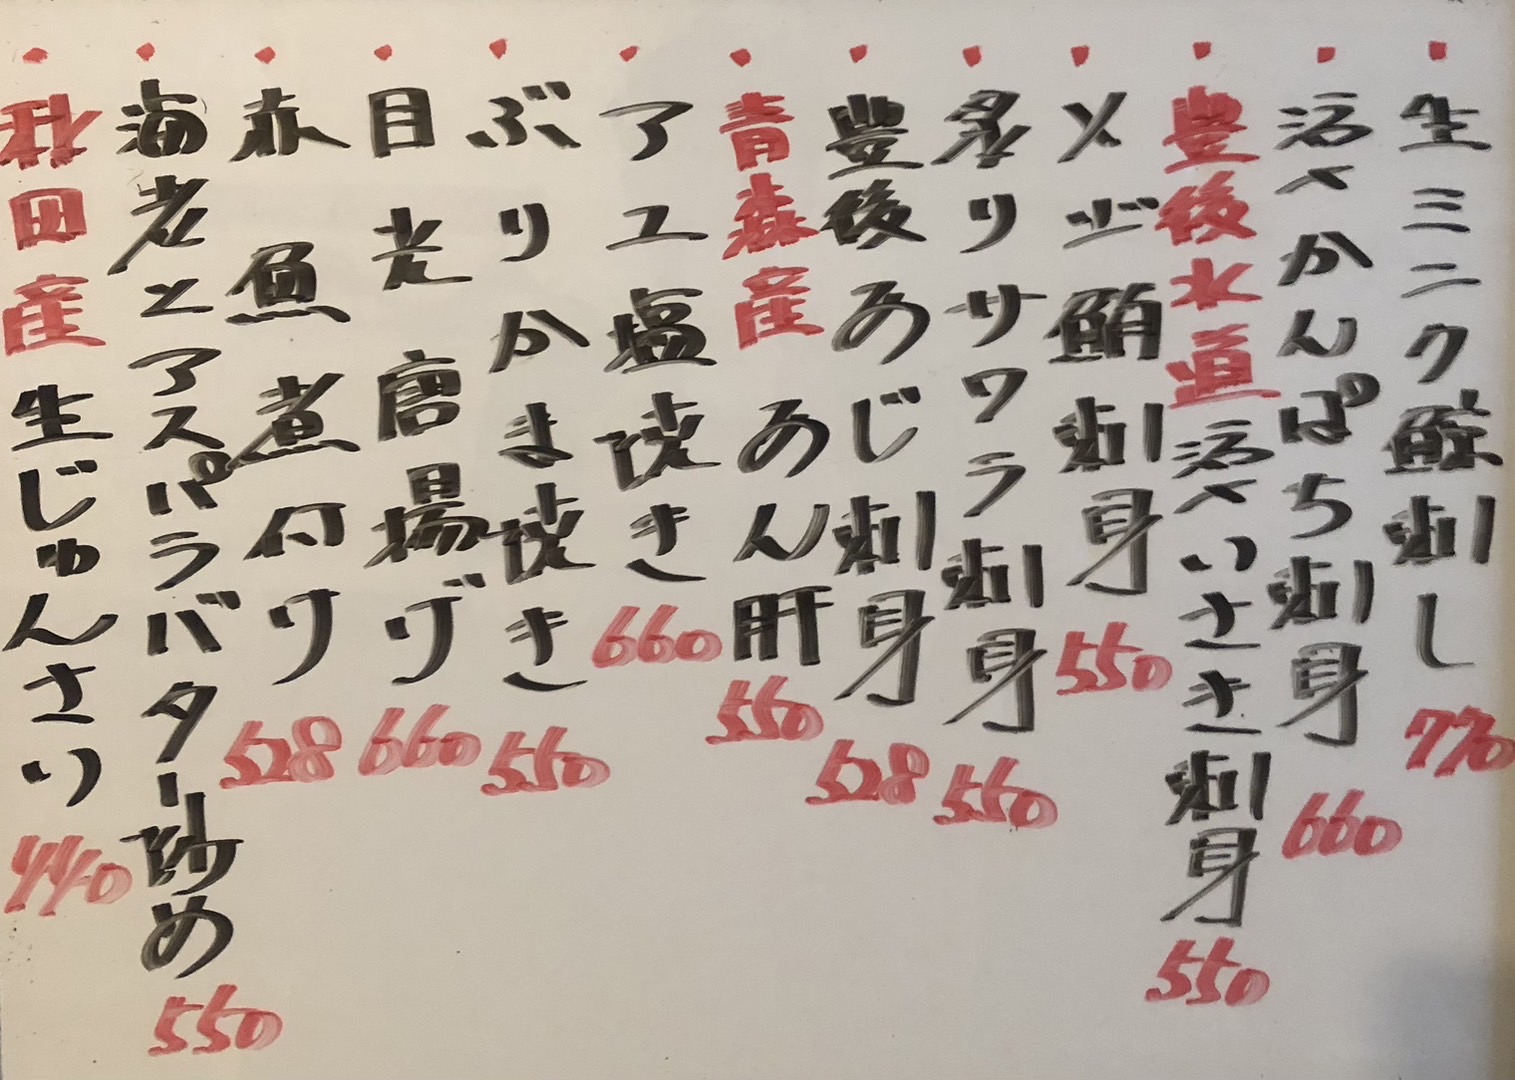 ・生ミンク鯨刺し 770
・活〆かんぱち刺身 660
・豊後水道活〆いさき刺身 550
・メジ鮪刺身 550
・炙りサワラ刺身 550
・豊後あじ刺身 528
・青森産あん肝 550
・アユ塩焼き 660
・ぶりかま焼き 550
・目光唐揚げ 660
・赤魚煮付け 528
・海老とアスパラバター炒め 550
・秋田産生じゅんさい 440